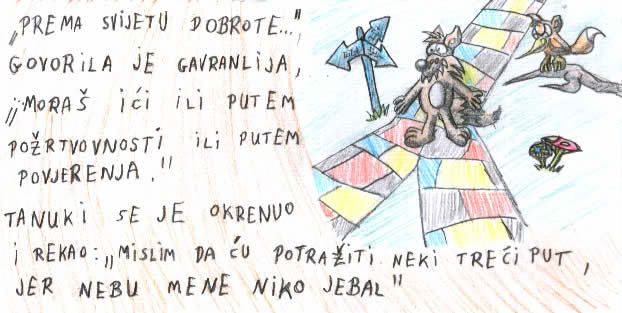 „PREMA SVIJETU DOBROTE...",
GOVORILA JE GAVRANLIJA,
„MORAŠ IĆI ILI PUTEM
POŽRTVOVNOSTI ILI PUTEM
POVJERENJA."
TANUKI SE JE OKRENUO
I REKAO: „MISLIM DA ĆU POTRAŽITI NEKI TREĆI PUT,
JER NEBU MENE NIKO JEBAL"